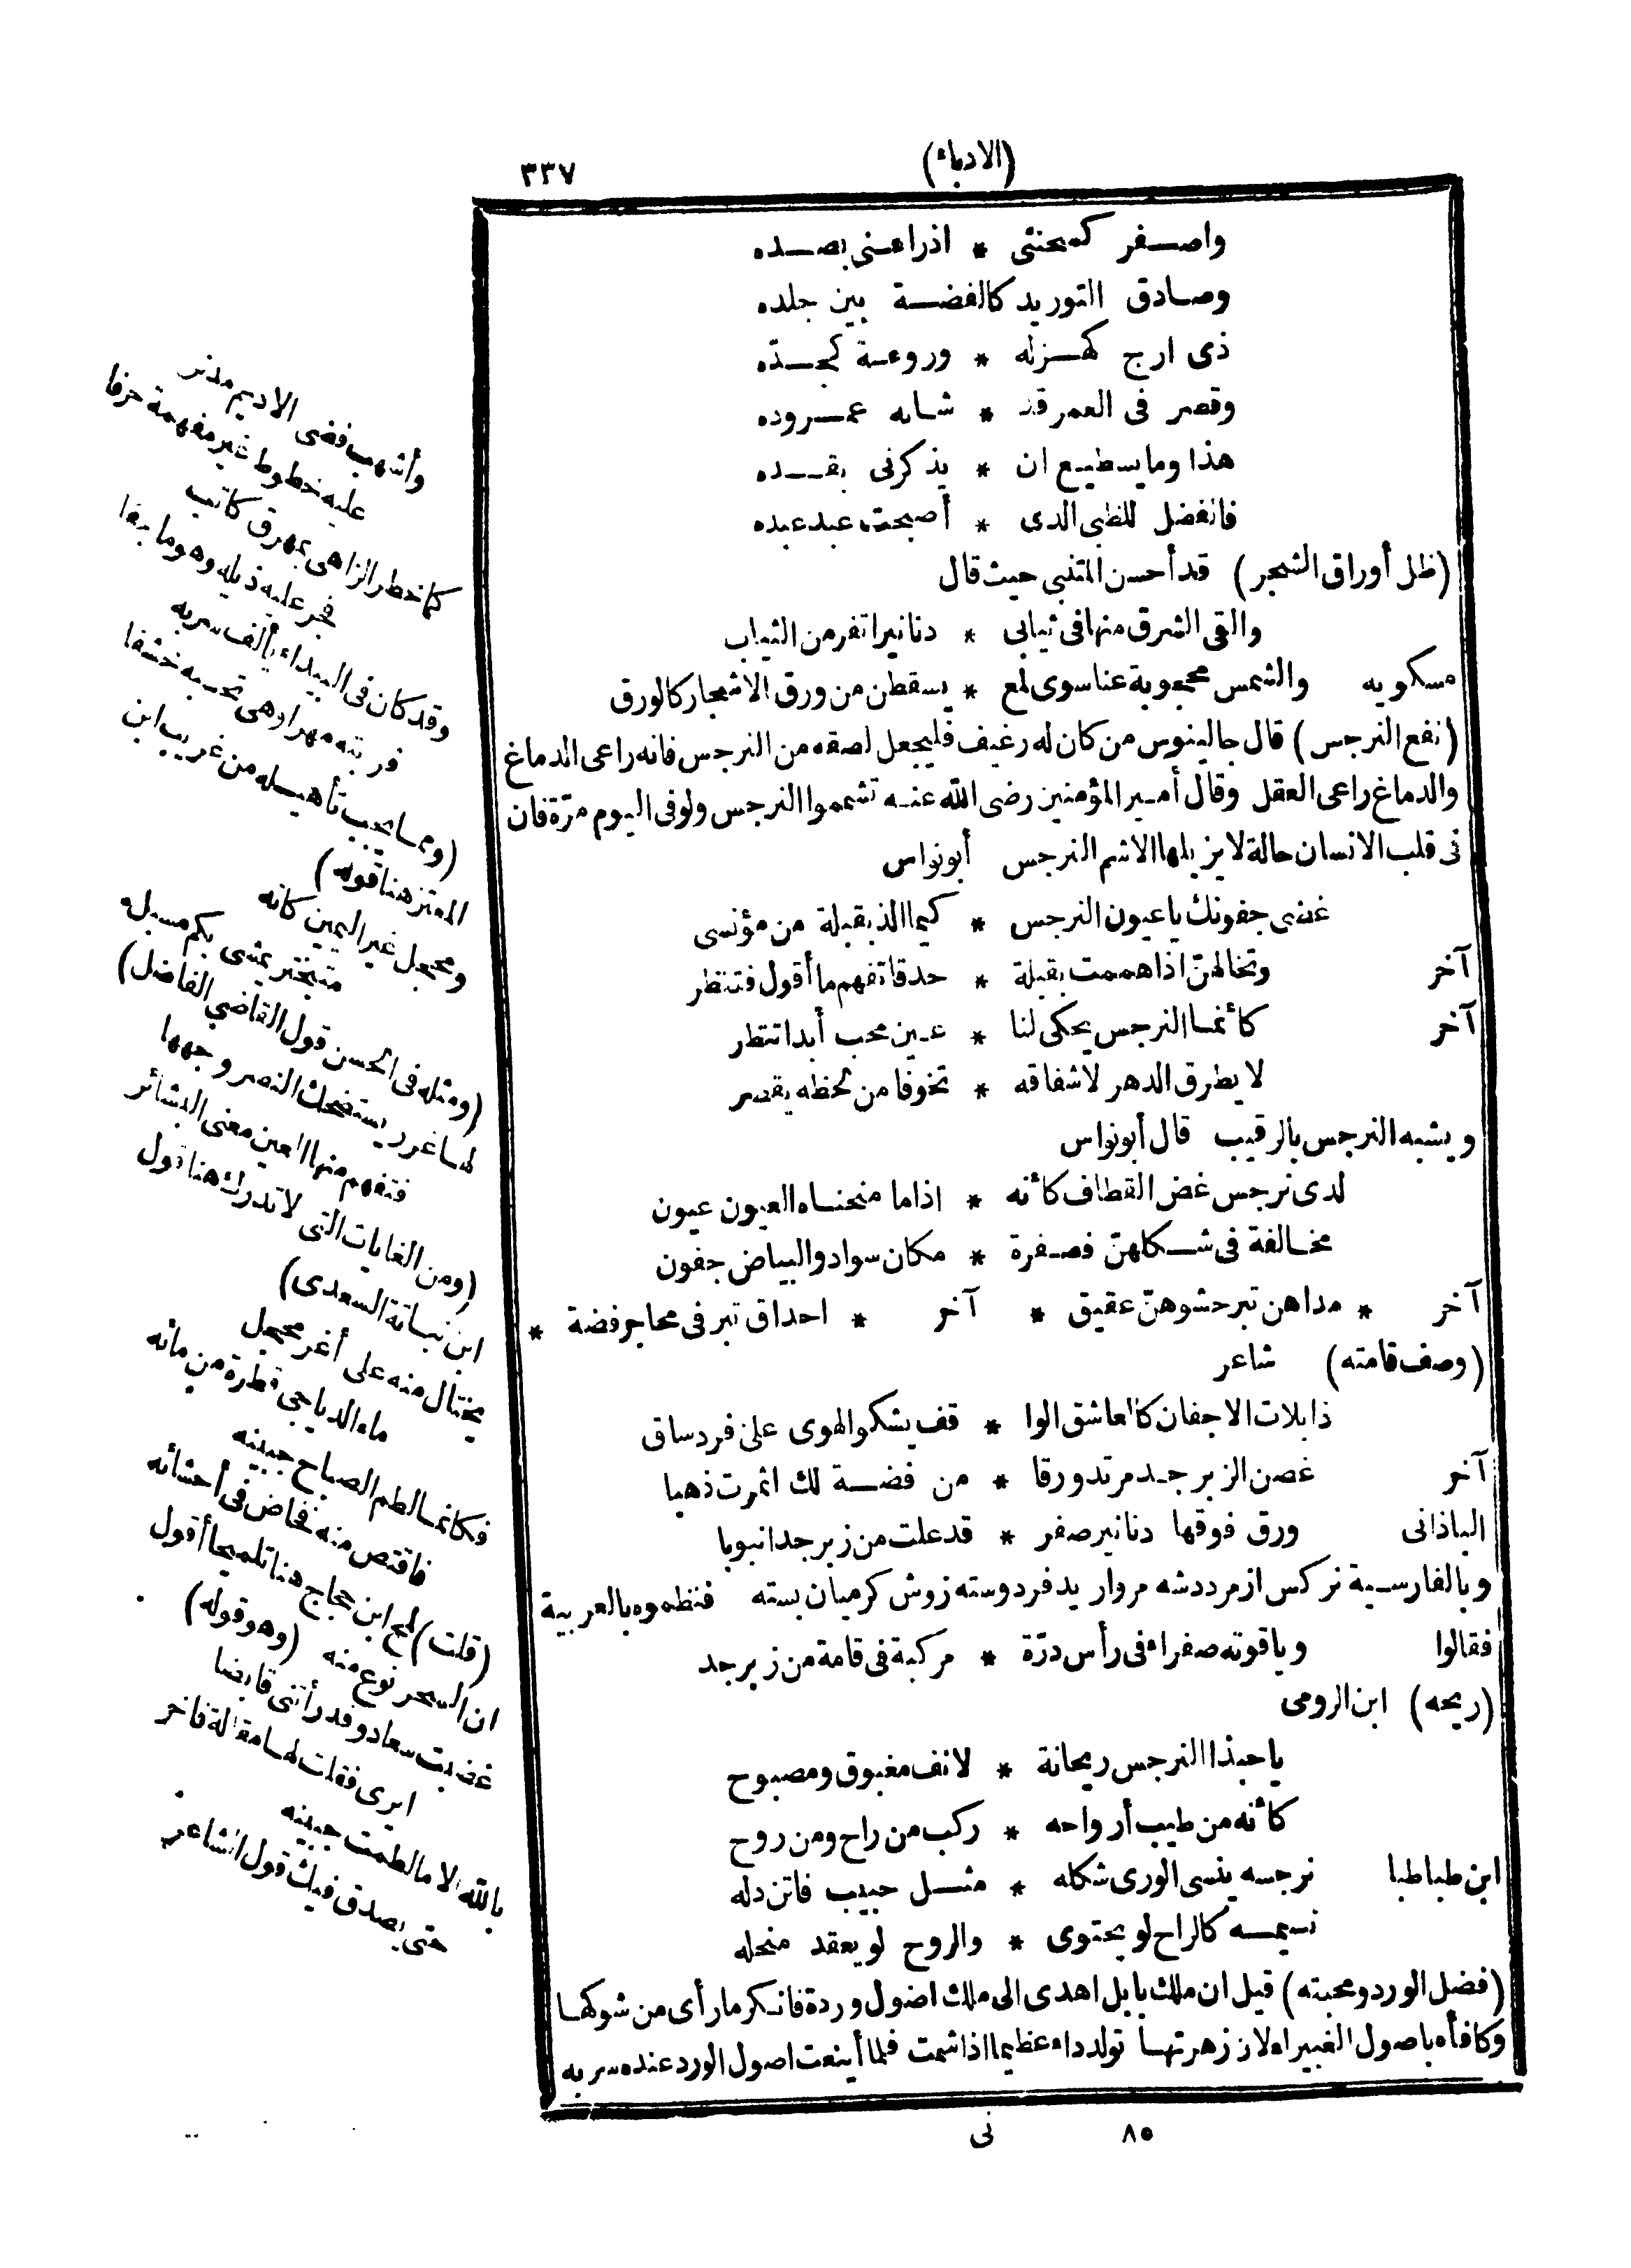 (الادباء)
٣٣٧
واصفر كمحنتى * اذراعنى بصده
وصادق التوريد كالفضة بين جلده
ذى ارج كهزله * وروعة كجده
وقصر فى العمر قد * شابه عمر وده
هذا وما يسطيع ان * يذكرنى بقده
فالفضل للظبى الذى * أصبحت عبد عبده
(ظل أوراق الشجر) قد أحسن المتنبى حيث قال
والقى الشرق منها فى ثيابى * دنانيرا تفر من الثياب
مسكويه والشمس محجوبة عنا سوى لمع * يسقطن من ورق الاشجار كالورق
(نفع النرجس) قال جالينوس من كان له رغيف فليجعل نصفه من النرجس فانه راعى الدماغ
والدماغ راعى العقل وقال أمير المؤمنين رضى الله عنه تشمموا النرجس ولو فى اليوم مرّة فان
فى قلب الانسان حالة لا يزيلها الا شم النرجس أبونواس
غضى جفونك يا عيون النرجس * كيما الذ بقبلة من مؤنسى
آخر وتخالهنّ اذا هممت بقبلة * حدقا تفهم ما أقول فتنظر
آخر كأنما النرجس يحكى لنا * عين محب أبدا تنظر
لا يطرق الدهر لاشفاقه * تخوفا من لحظه يقصر
ويشبه النرجس بالرقيب قال أبونواس
لدى نرجس غض القطاف كأنه * اذا ما منحناه العيون عيون
مخالفة فى شكلهنّ فصفرة * مكان سواد والبياض جفون
آخر * مداهن تبر حشوهنّ عقيق * آخر * احداق تبر فى محاجر فضة *
(وصف قامته) شاعر
ذابلات الاجفان كالعاشق الوا * قف يشكو الهوى على فرد ساق
آخر غصن الزبرجد مرتد ورقا * من فضة لك اثمرت ذهبا
الباذانى ورق فوقها دنانير صفر * قد علت من زبرجد انبوبا
وبالفارسية نركس از مرد دشه مرواريد فردوسته زوش كرميان بسته فنظموه بالعربية
فقالوا وياقوته صفراء فى رأس درّة * مركبة فى قامة من زبرجد
(ريحه) ابن الرومى
يا حبذا النرجس ريحانة * لانف مغبوق ومصبوح
كأنه من طيب أرواحه * ركب من راح ومن روح
ابن طباطبا نرجسه ينسى الورى شكله * مثل حبيب فاتن دله
نسيمه كالراح لو يحتوى * والروح لو يعقد منحله
(فضل الورد ومحبته) قيل ان ملك بابل اهدى الى ملك اصول وردة فانكر ما رأى من شوكها
وكافأه باصول الغبيراء لان زهرتها تولد داء عظيما اذا شمت فلما أينعت اصول الورد عنده سر به
٨٥ نى
وأشهب فضى الاديم مدنر
عليه خطوط غير مفهمة حرفا
كما خطر الزاهى بمهرق كاتب
فجر عليه ذيله وهو ما جفا
وقد كان فى البيداء يألف سربه
فربته مهرا وهى تحسبه خشفا
(ومما يجب تأهيله من غريب ابن
المعتز هنا قوله)
ومحجل غير اليمين كانه
متبختر يمشى بكم مسبل
(ومثله فى الحسن قول القاضى الفاضل)
لها غرر يستضحك النصر وجهها
فتفهم منها العين معنى البشائر
(ومن الغايات التى لا تدرك هنا قول
ابن نباتة السعدى)
يختال منه على أغر محجل
ماء الدياجى قطرة من مائه
فكانما لطم الصباح جبينه
فاقتص منه فخاض فى أحشائه
(قلت) لمح ابن حجاج هنا تلميحا أقول
ان السحر نوع منه (وهو قوله)
غضبت سعاد وقد رأتنى قابضا
ايرى فقلت لها مقالة فاخر
بالله الا ما لطمت جبينه
حتى يصدق فيك قول الشاعر